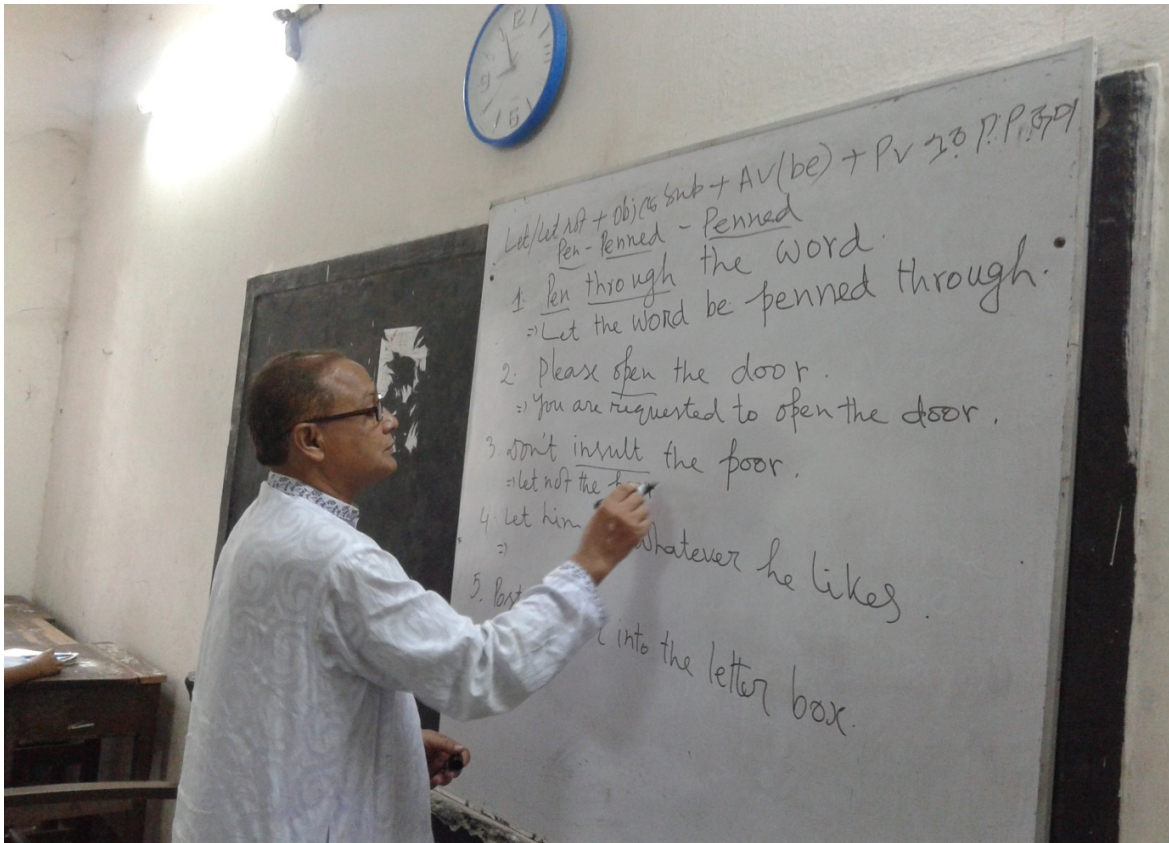 12
9
6
Let/Let not + Obj কে Sub + AV(be) + PV এর P.P. রূপ
Pen - Penned - Penned
1. Pen through the word.
⇒ Let the word be penned through.
2. Please open the door.
⇒ You are requested to open the door.
3. Don't insult the poor.
⇒ let not the
4. Let him whatever he likes.
⇒
5. Post into the letter box.